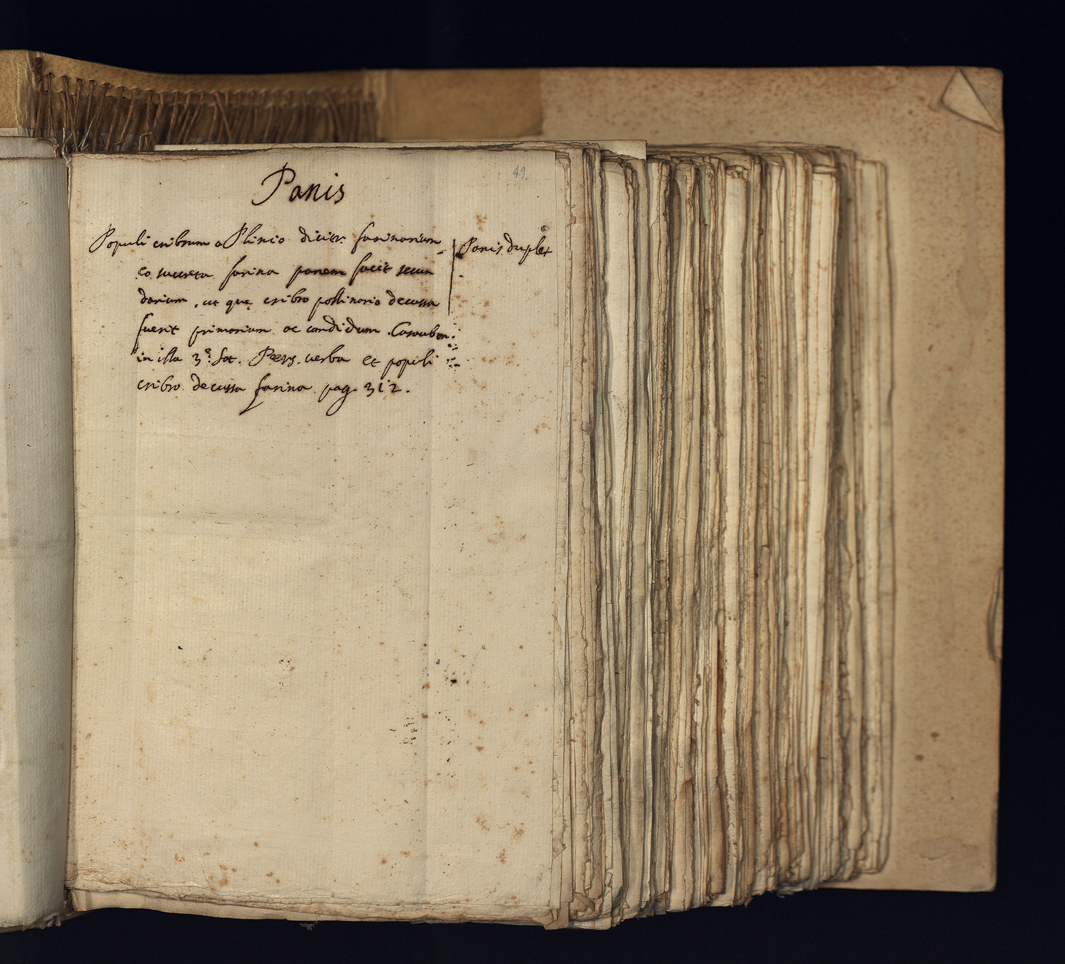 49.
Panis
Populi cribrum a Plinio dicitur farinarium
Panis duplex
eo succreta farina panem facit secun
darium, ut quę cribro pollinario decussa
fuerit primarium ac candidum. Casaubon.
in illa 3ę Sat. Pers. verba et populi
cribro decussa farina pag. 312.